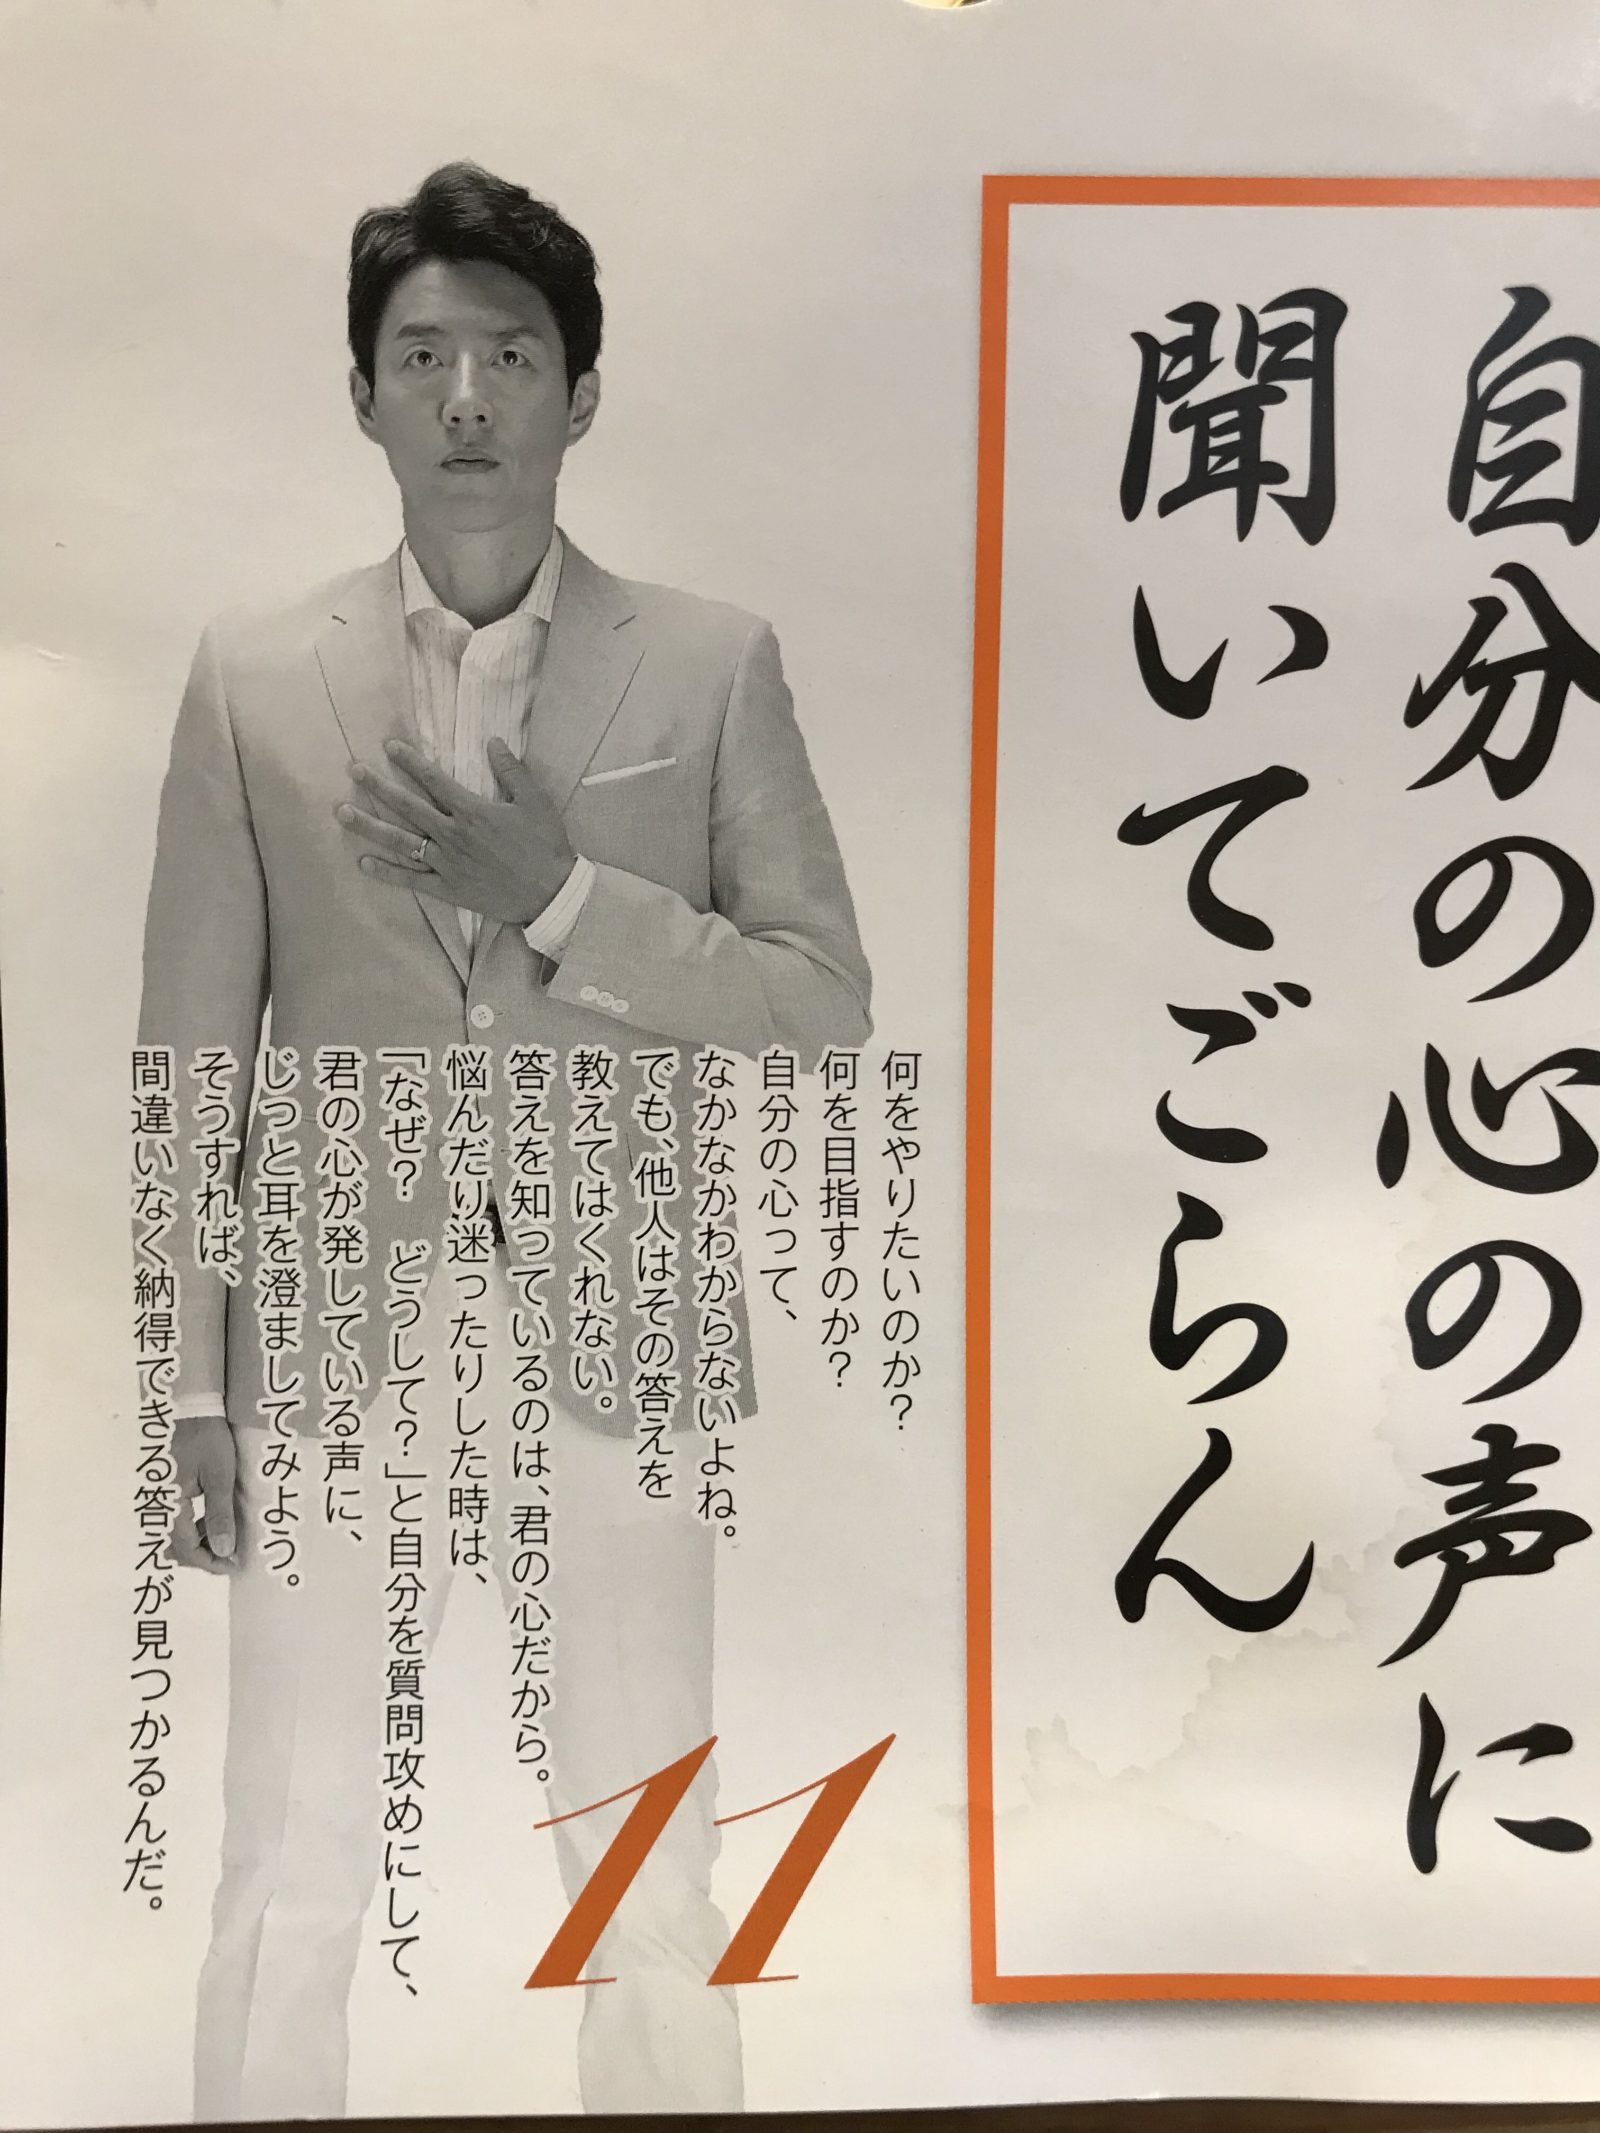 自分の心の声に
聞いてごらん
何をやりたいのか?
何を目指すのか?
自分の心って、
なかなかわからないよね。
でも、他人はその答えを
教えてはくれない。
答えを知っているのは、君の心だから。
悩んだり迷ったりした時は、
「なぜ? どうして?」と自分を質問攻めにして、
君の心が発している声に、
じっと耳を澄ましてみよう。
そうすれば、
間違いなく納得できる答えが見つかるんだ。
11